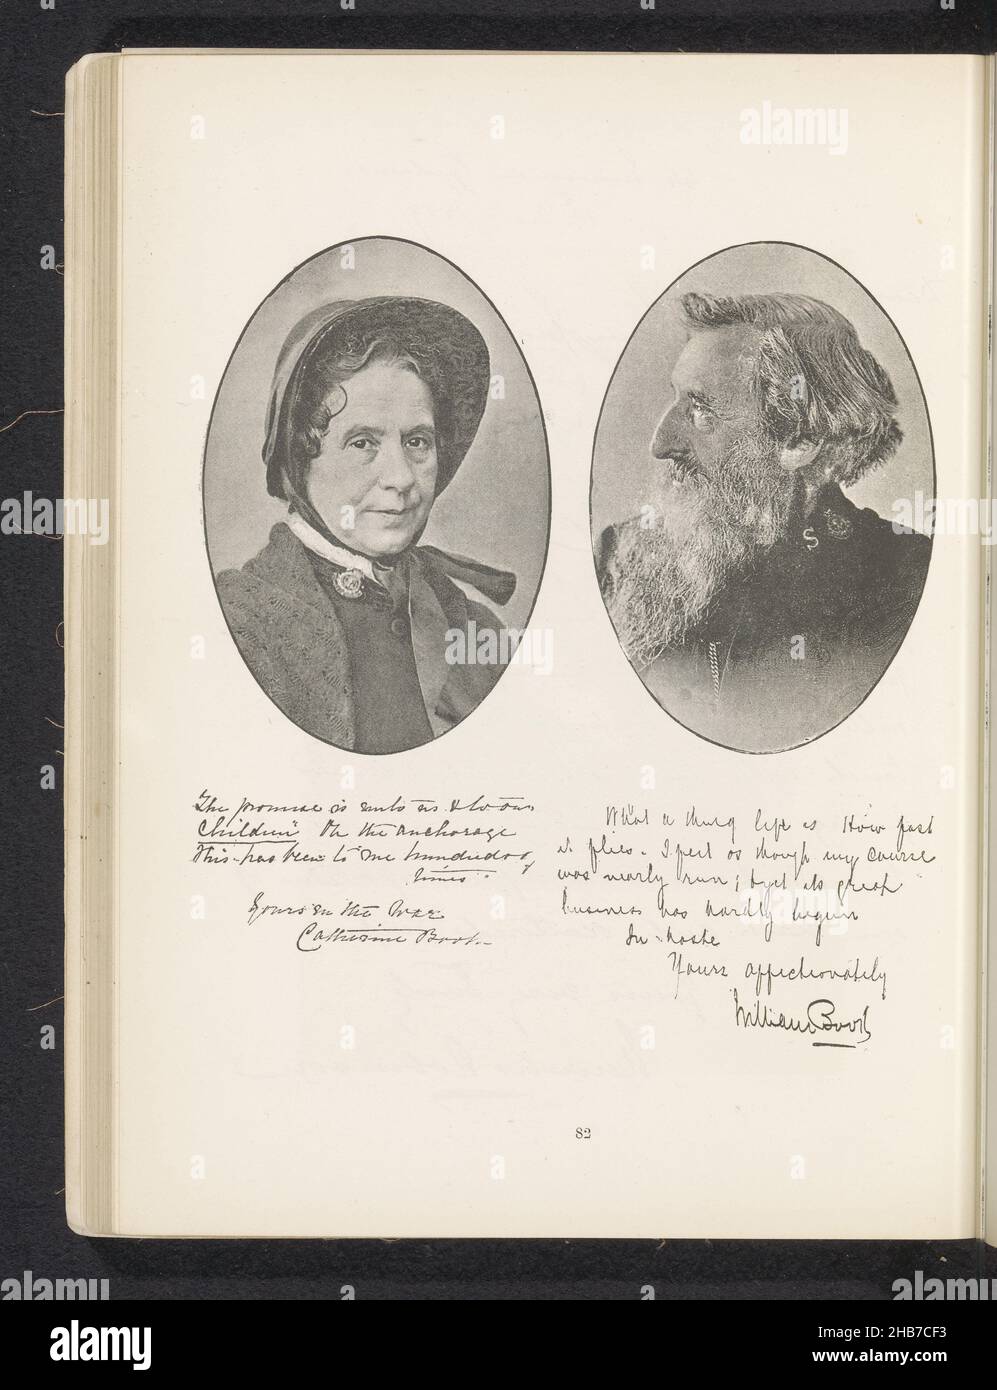 The promise is unto us & to our
Children" Oh the anchorage
this has been to me hundreds of
times.
Yours in the War
Catherine Booth
What a thing life is How fast
it flies. I feel as though my course
was nearly run; & yet its great
business has hardly begun
In haste
Yours affectionately
William Booth
S
82
alamy
alamy
Image ID: 2HB7CF3
www.alamy.com